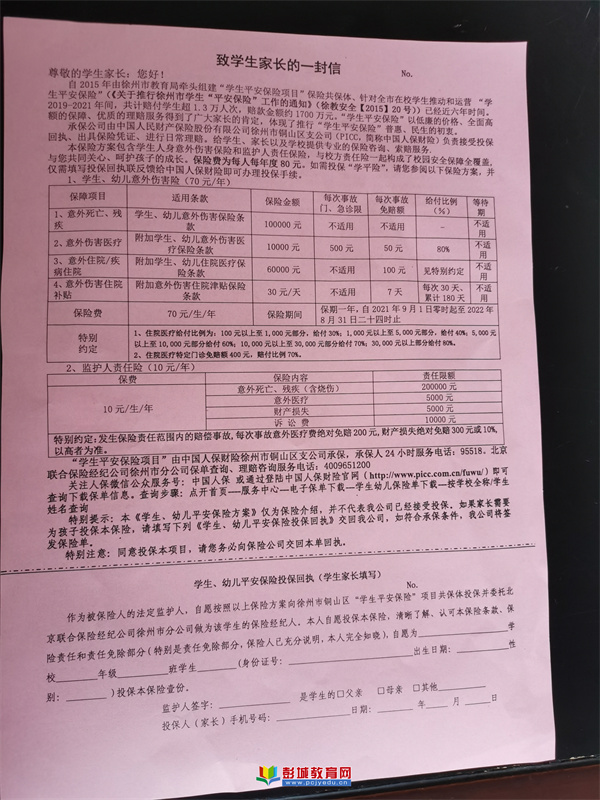 致学生家长的一封信
No.
尊敬的学生家长：您好！
自 2015 年由徐州市教育局牵头组建“学生平安保险项目”保险共保体、针对全市在校学生推动和运营“学
生平安保险”（《关于推行徐州市学生“平安保险”工作的通知》（徐教安全【2015】20 号））已经近六年时间。
2019-2021 年间，共计赔付学生超 1.3 万人次，赔款金额约 1700 万元。“学生平安保险”以低廉的价格、全面高
额的保障、优质的理赔服务得到了广大家长的肯定，体现了推行“学生平安保险”普惠、民生的初衷。
承保公司由中国人民财产保险股份有限公司徐州市铜山区支公司（PICC，简称中国人保财险）负责接受投保
回执、出具保险凭证、进行日常理赔。给学生、家长以及学校提供专业的保险咨询、索赔服务。
本保险方案包含学生人身意外伤害保险和监护人责任保险，与校方责任险一起构成了校园安全保障全覆盖，
与您共同关心、呵护孩子的成长。保险费为每人每年度 80 元。如需投保“学平险”，请您参阅以下保险方案，并
仅需填写投保回执联反馈给中国人保财险即可办理投保手续。
1、学生、幼儿意外伤害险（70 元/年）
保障项目 适用条款 保险金额 每次事故门、急诊限 每次事故免赔额 给付比例（%） 等待期
1、意外死亡、残疾 学生、幼儿意外伤害保险条款 100000 元 不适用 不适用 - 不适用
2、意外伤害医疗 附加学生、幼儿意外伤害医疗保险条款 10000 元 500 元 50 元 80% 不适用
3、意外住院/疾病住院 附加学生、幼儿住院医疗保险条款 60000 元 不适用 100 元 见特别约定 不适用
4、意外伤害住院补贴 附加意外伤害住院津贴保险条款 30 元/天 不适用 7 天 每次 30 天、累计 180 天 不适用
保险费 70 元/生/年 保险期间 保期一年，自 2021 年 9 月 1 日零时起至 2022 年 8 月 31 日二十四时止
特别约定
1、住院医疗给付比例为：100 元以上至 1,000 元部分，给付 30%；1,000 元以上至 5,000 元部分，给付 40%；5,000 元
以上至 10,000 元部分给付 60%；10,000 元以上至 30,000 元部分给付 70%；30,000 元以上部分给付 80%。
2、住院医疗特定门诊免赔额 400 元，赔付比例 70%。
2、监护人责任险（10 元/年）
保费 保险内容 责任限额
10 元/生/年
意外死亡、残疾（含烧伤） 200000 元
意外医疗 5000 元
财产损失 5000 元
诉讼费 10000 元
特别约定：发生保险责任范围内的赔偿事故，每次事故意外医疗费绝对免赔 200 元，财产损失绝对免赔 300 元或 10%，
以高者为准。
“学生平安保险项目”由中国人保财险徐州市铜山区支公司承保，承保人 24 小时服务电话：95518，北京
联合保险经纪公司徐州市分公司保单查询、理赔咨询服务电话：4009651200
关注人保微信公众服务号：中国人保 或通过登陆中国人保财险官网（http://www.picc.com.cn/fuwu/）即可
查询下载保单信息。查询步骤：点开首页—服务中心—电子保单下载—学生幼儿保险单下载—按学校全称/学生
姓名查询
特别提示：本《学生、幼儿平安保险方案》仅为保险介绍，并不代表我公司已经接受投保。如果家长需要
为孩子投保本保险，请填写下列《学生、幼儿平安保险投保回执》交回我公司，如符合承保条件，我公司将签
发保险单。
特别注意：同意投保本项目，请您务必向保险公司交回本单回执。
学生、幼儿平安保险投保回执（学生家长填写）
No.
作为被保险人的法定监护人，自愿按照以上保险方案向徐州市铜山区“学生平安保险”项目共保体投保并委托北
京联合保险经纪公司徐州市分公司做为该学生的保险经纪人。本人自愿投保本保险，清晰了解、认可本保险条款、保
险责任和责任免除部分（特别是责任免除部分，保险人已充分说明，本人完全知晓），自愿为____________学
校________年级________班学生________（身份证号：____________________出生日期：________性
别：______）投保本保险壹份。
监护人签字：____________ 是学生的□父亲 □母亲 □其他________
投保人（家长）手机号码：____________ 日期：______年____月____日
彭城教育网
www.pcjyedu.cn